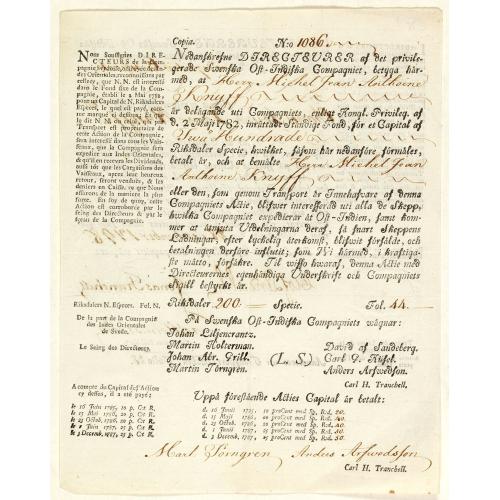 Copia. N:o 1086.
Nous Soussignés DIRECTEURS de la Compagnie
des Indes Orientales, reconnoissons par
cessey, que N.N. est interessé
dans le Fond fixe de la Compagnie,
établi le 2 May 1782,
pour un Capital de N. Riksdalers
Especes, le quel est payé,
Transport est proprietaire de cette
Action de la Compagnie,
sera interessé dans tous les Vaisseaux,
que la Compagnie fera
expedier aux Indes Orientales,
Vaisseaux, apres leur heureux
retour, seront vendués, & les
deniers en Caisse, ce que Nous
assurons de la maniere la plus
forte. En foy de quoy, cette
Action est corroborée par le
seing des Directeurs & par le
sçeau de la Compagnie.
Nedanskrefne DIRECTEURER af det privilegerade
Swenska Ost-Indiska Compagniet, betyga härmed,
at Herr Michel Jean Anthoine
Knyff
är delägande uti Compagniets, enligt Kongl. Privileg. af
d. 2 Maji 1782, inrättade Ständige Fond, för et Capital af
Tuu Hundrade
Riksdaler Specie, hwilket, såsom här nedanföre förmäles,
betalt är, och at bemälte Herr Michel Jean
Anthoine Knyff
eller den, som genom Transport är Innehafware af denna
Compagniets Actie, blifwer interesserad uti alla de Skepp,
hwilka Compagniet expedierar åt Ost-Indien, samt kommer
at åtnjuta Utdelningarna deraf, så snart Skeppens
Laddningar, efter lyckelig återkomst, blifwit försålde, och
betalningen derföre influtit; som Wi härmed, i kraftigaste
måtto, försäkre. Til wisso hwaraf, denna Actie med
Directeurernes egenhändiga Underskrift och Compagniets
Sigill bestyrkt är.
Riksdalers N. Especes. Fol. N.
Riksdaler 200. Specie. Fol. 44
De la part de la Compagnie
des Indes Orientales
de Suede.
Le Seing des Directeurs.
På Swenska Ost-Indiska Compagniets wägnar:
Johan Liljencrantz.
Martin Holterman. David af Sandeberg.
Johan Abr. Grill. (L. S.) Carl G. Küsel.
Martin Törngren. Anders Arfwedson.
Carl H. Tranchell.
A compte du Capital de l'Action
cy dessus, il a été payé:
le 16 Juin 1785, 10 p. Ct R.
le 15 Maj 1786, 20 p. Ct R.
le 23 Octob. 1786, 20 p. Ct R.
le 1 Juin 1787, 25 p. Ct R.
le 3 Decemb. 1787, 25 p. Ct R.
Uppå förestående Acties Capital är betalt:
d. 16 Junii 1785, 10 proCent med Sp. Rd. 20.
d. 15 Maji 1786, 20 proCent med Sp. Rd. 40.
d. 23 Octob. 1786, 20 proCent med Sp. Rd. 40.
d. 1 Junii 1787, 25 proCent med Sp. Rd. 50.
d. 3 Decemb. 1787, 25 proCent med Sp. Rd. 50.
Mart Törngren Anders Arfwedsson
Carl H. Tranchell.